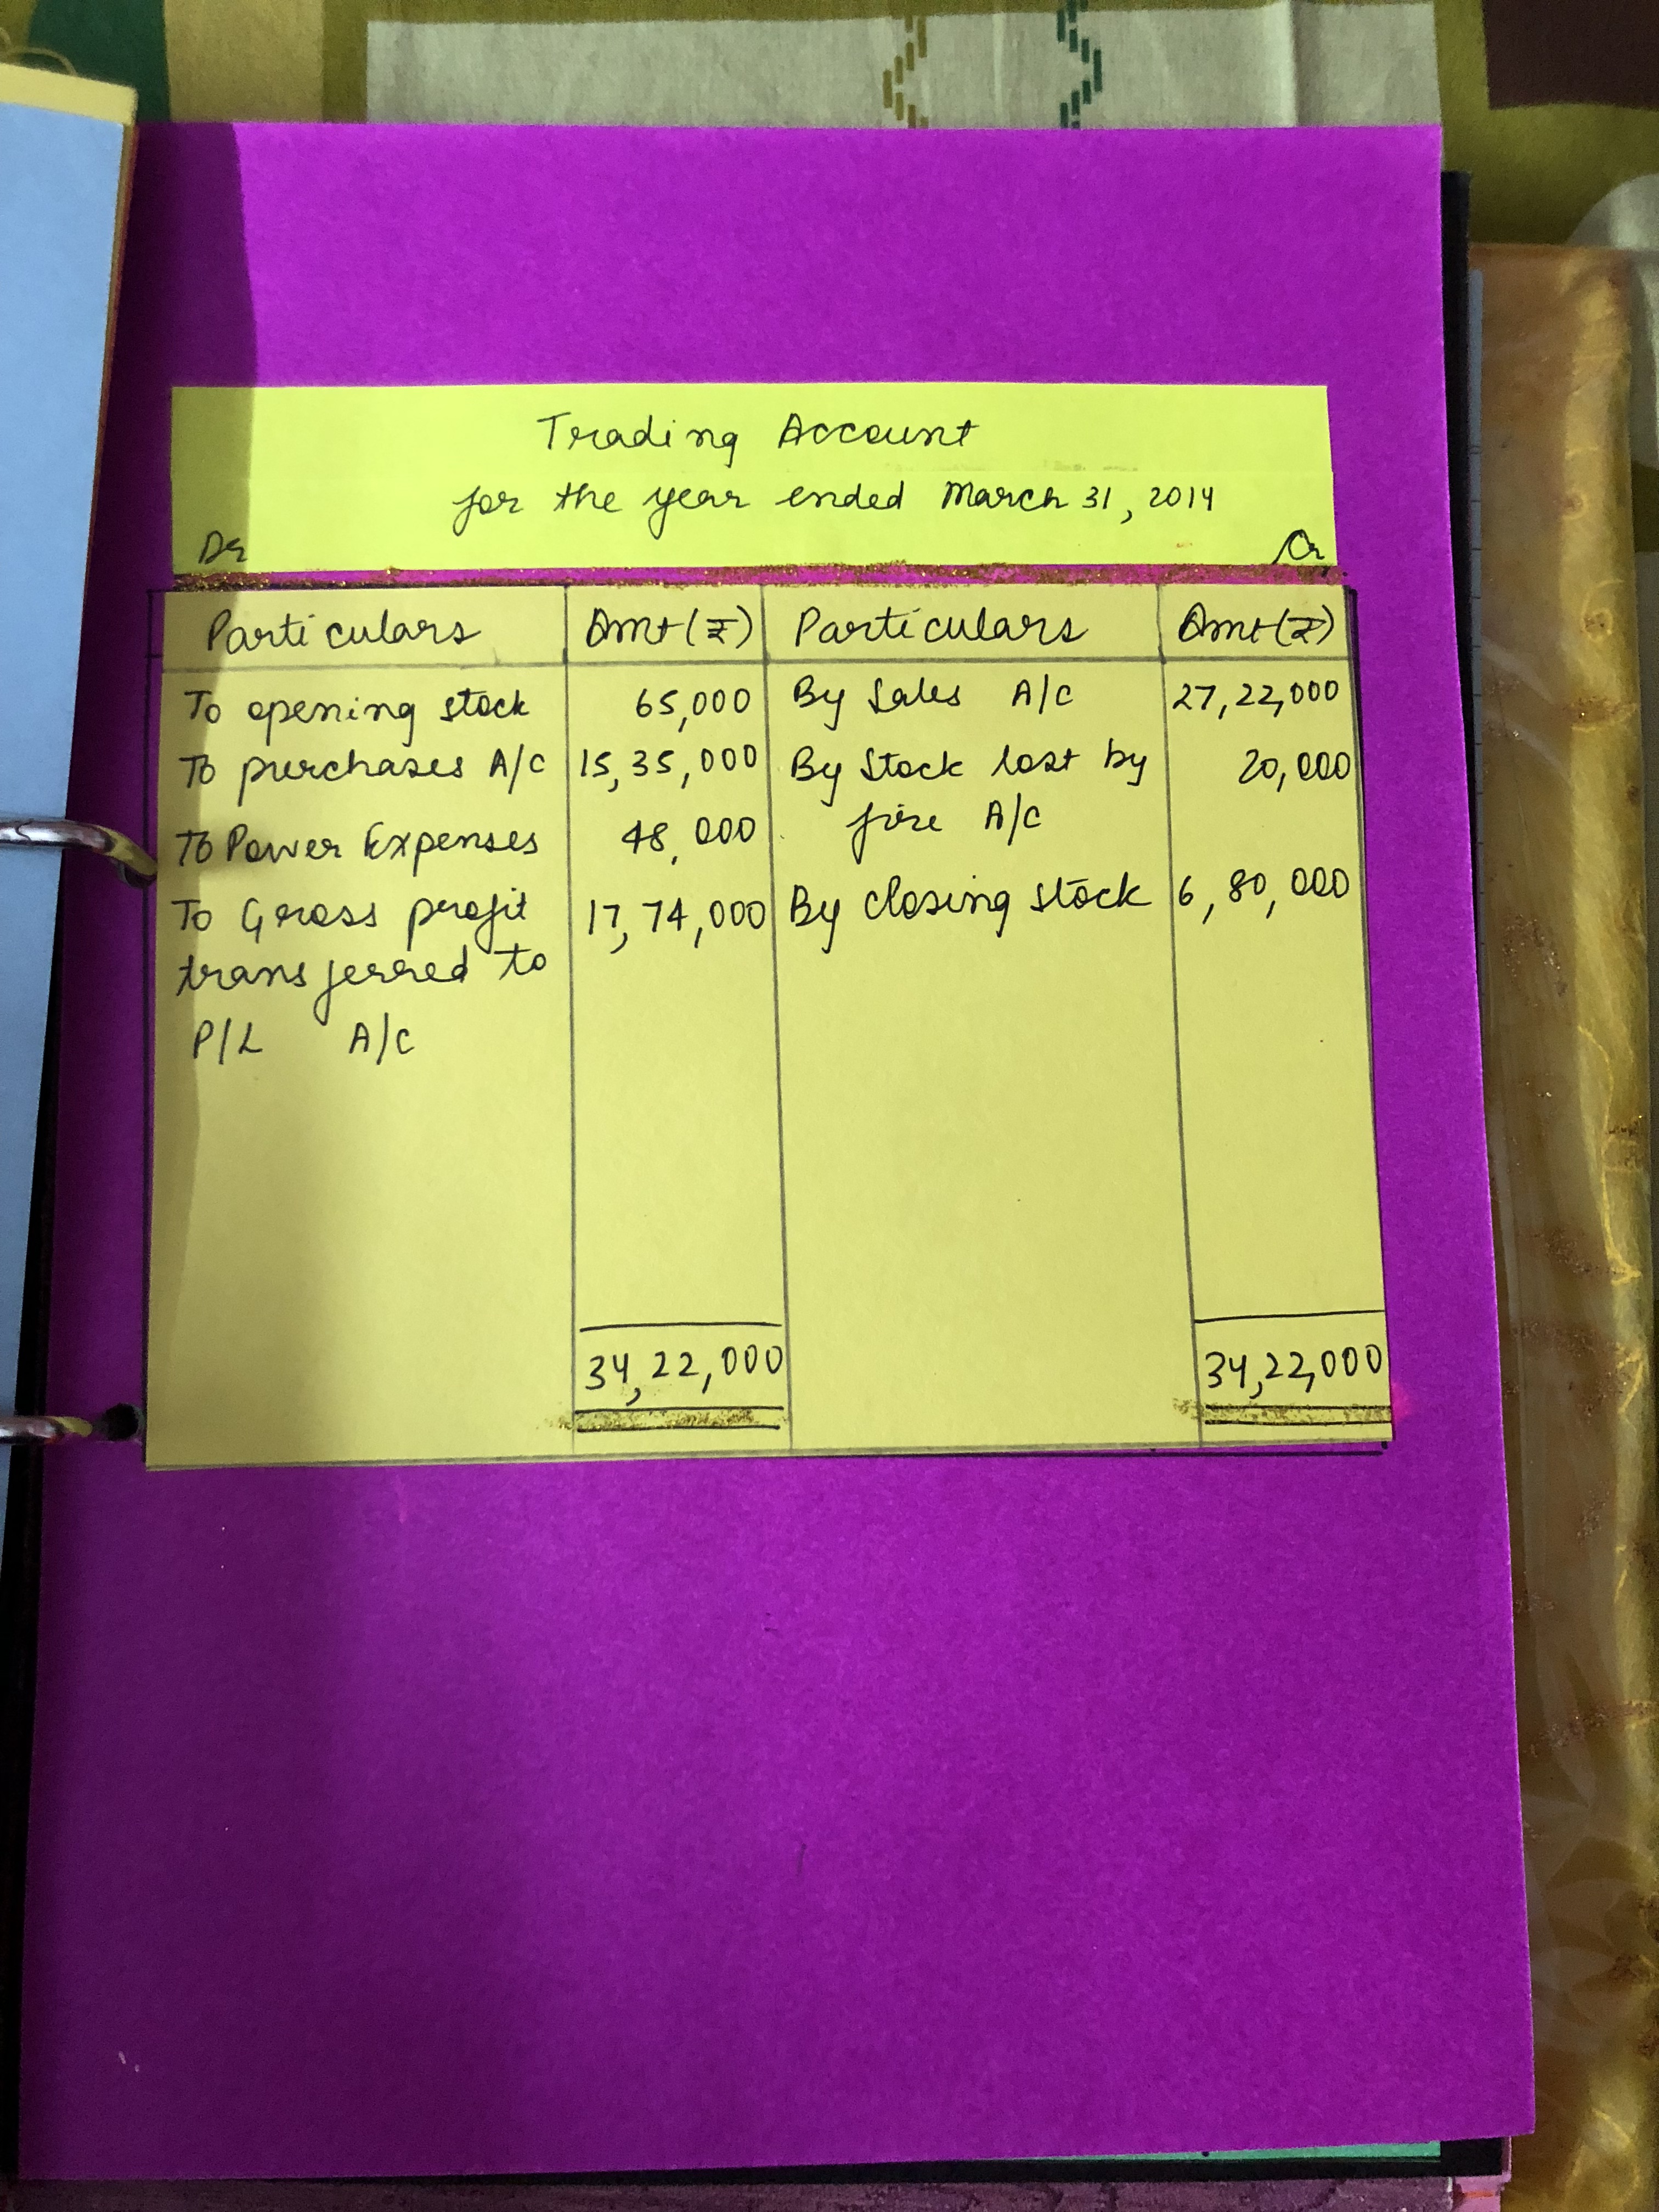 Trading Account
for the year ended March 31, 2014
Dr Cr
Particulars Amt(₹) Particulars Amt(₹)
To opening stock 65,000 By Sales A/C 27,22,000
To purchases A/C 15,35,000 By Stock lost by 20,000
To Power Expenses 48,000 fire A/C
To Gross profit 17,74,000 By closing stock 6,80,000
transferred to
P/L A/C
34,22,000 34,22,000